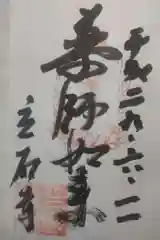 平成二九.六.二一
薬師如来
立石寺